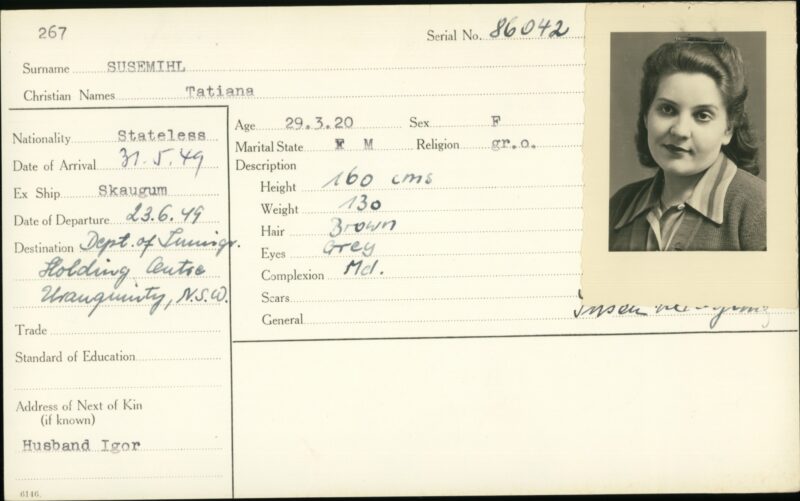 267
Serial No. 86042
Surname SUSEMIHL
Christian Names Tatiana
Nationality Stateless
Date of Arrival 31.5.49
Ex Ship Skaugum
Date of Departure 23.6.49
Destination Dept. of Immigr.
Holding Centre
Uranquinty, N.S.W.
Trade
Standard of Education
Address of Next of Kin
(if known)
Husband Igor
6146.
Age 29.3.20 Sex F
Marital State M Religion gr.o.
Description
Height 160 cms
Weight 130
Hair Brown
Eyes Grey
Complexion Md.
Scars
General